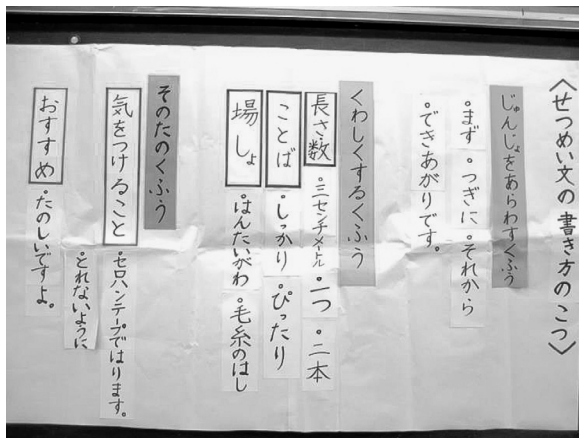 〈せつめい文の書き方のこつ〉
じゅんじょをあらわすくふう
。まず。つぎに。それから
。できあがりです。
くわしくするくふう
長さ、数 。三センチメートル。一つ。二本
ことば 。しっかり。ぴったり
場しょ 。はんたいがわ。毛糸のはし
そのたのくふう
気をつけること 。セロハンテープではります。
。とれないように
おすすめ 。たのしいですよ。